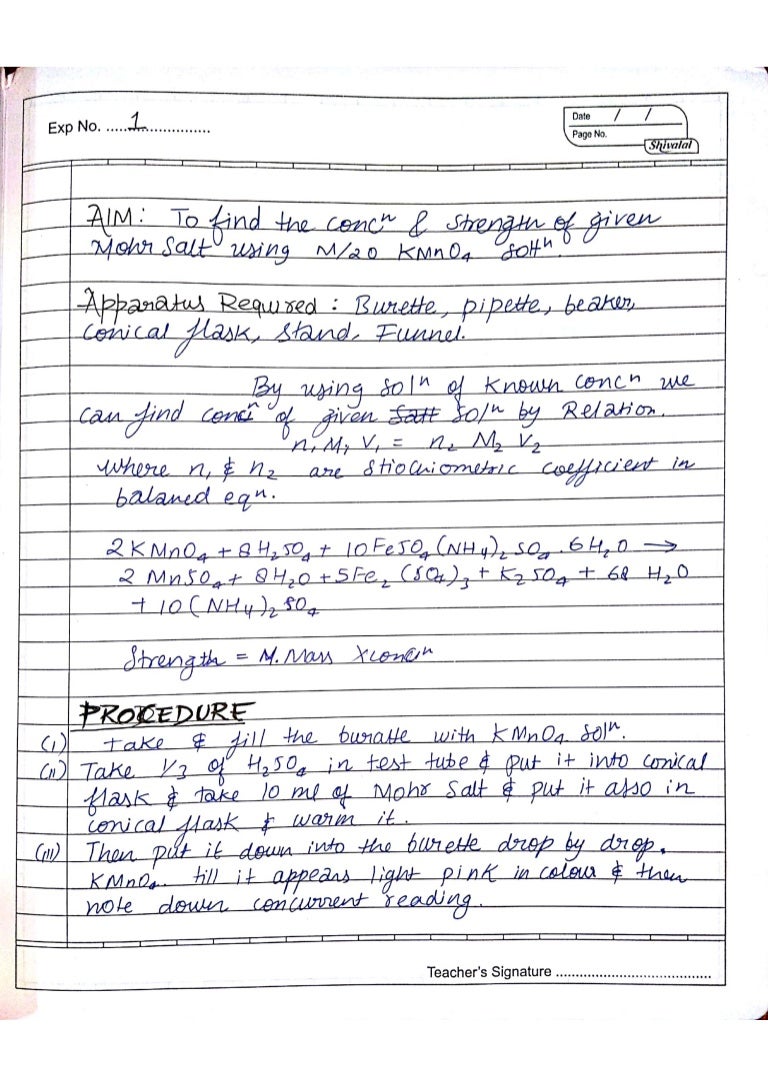 Exp No. ......1................
Date / /
Page No.
Shivalal
AIM: To find the concⁿ & strength of given
Mohr Salt using M/20 KMnO₄ soltⁿ.
Apparatus Required : Burette, pipette, beaker,
conical flask, stand, Funnel.
By using solⁿ of known concⁿ we
can find concⁿ of given ~~Satt~~ solⁿ by Relation.
n₁ M₁ V₁ = n₂ M₂ V₂
where n₁ & n₂ are stiochiometric coefficient in
balaned eqn.
2 KMnO₄ + 8 H₂SO₄ + 10 FeSO₄ (NH₄)₂ SO₄ . 6 H₂O →
2 MnSO₄ + 8 H₂O + 5 Fe₂ (SO₄)₃ + K₂SO₄ + 68 H₂O
+ 10 (NH₄)₂ SO₄
Strength = M. Mass X concⁿ
PROCEDURE
(i) take & fill the buratte with KMnO₄ solⁿ.
(ii) Take 1/3 of H₂SO₄ in test tube & put it into conical
flask & take 10 ml of Mohr Salt & put it also in
conical flask & warm it.
(iii) Then put it down into the burette drop by drop.
KMnO₄ till it appears light pink in colour & then
note down concurrent reading.
Teacher's Signature .......................................